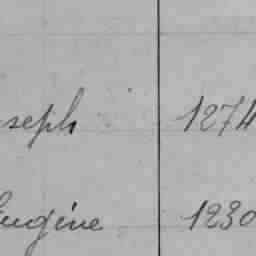 seph 1274
Eugène 1230